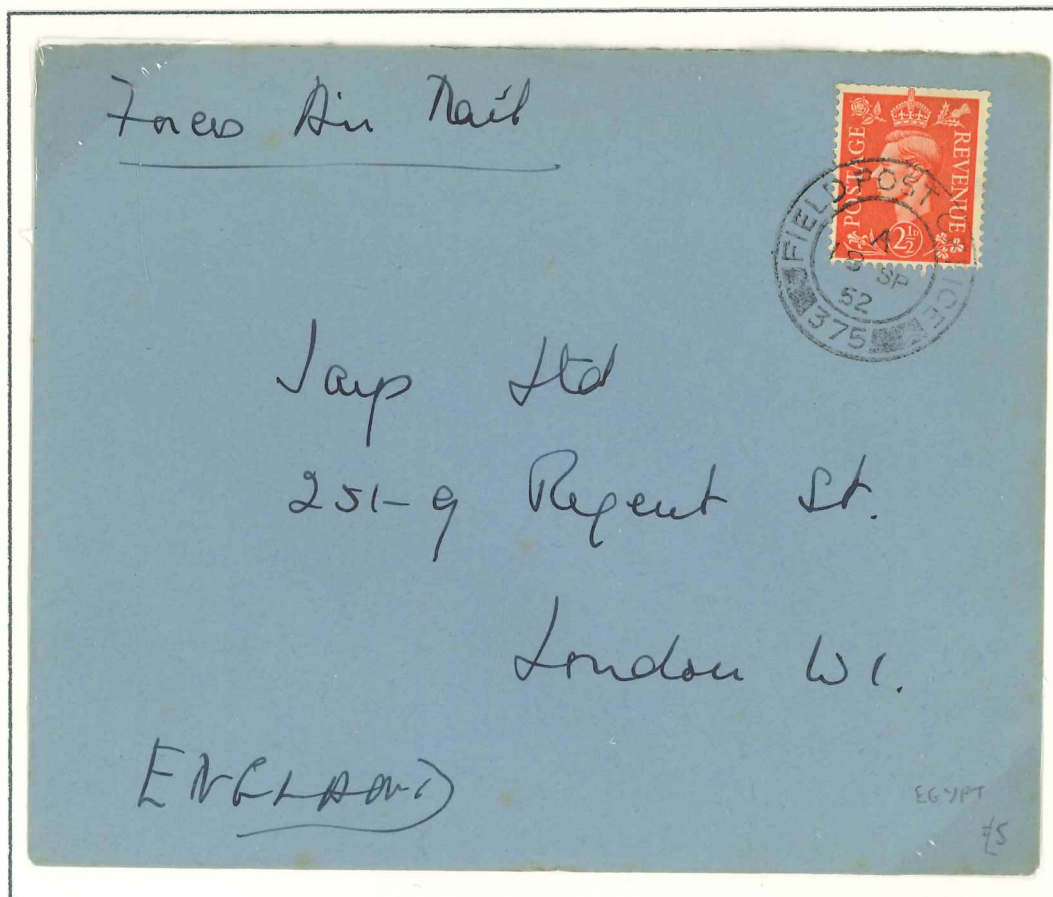 Forces Air Mail
POSTAGE REVENUE
2½D
FIELD POST OFFICE
A
SP
52
375
Jays Ltd
251-9 Regent St.
London W1.
ENGLAND
EGYPT
£5